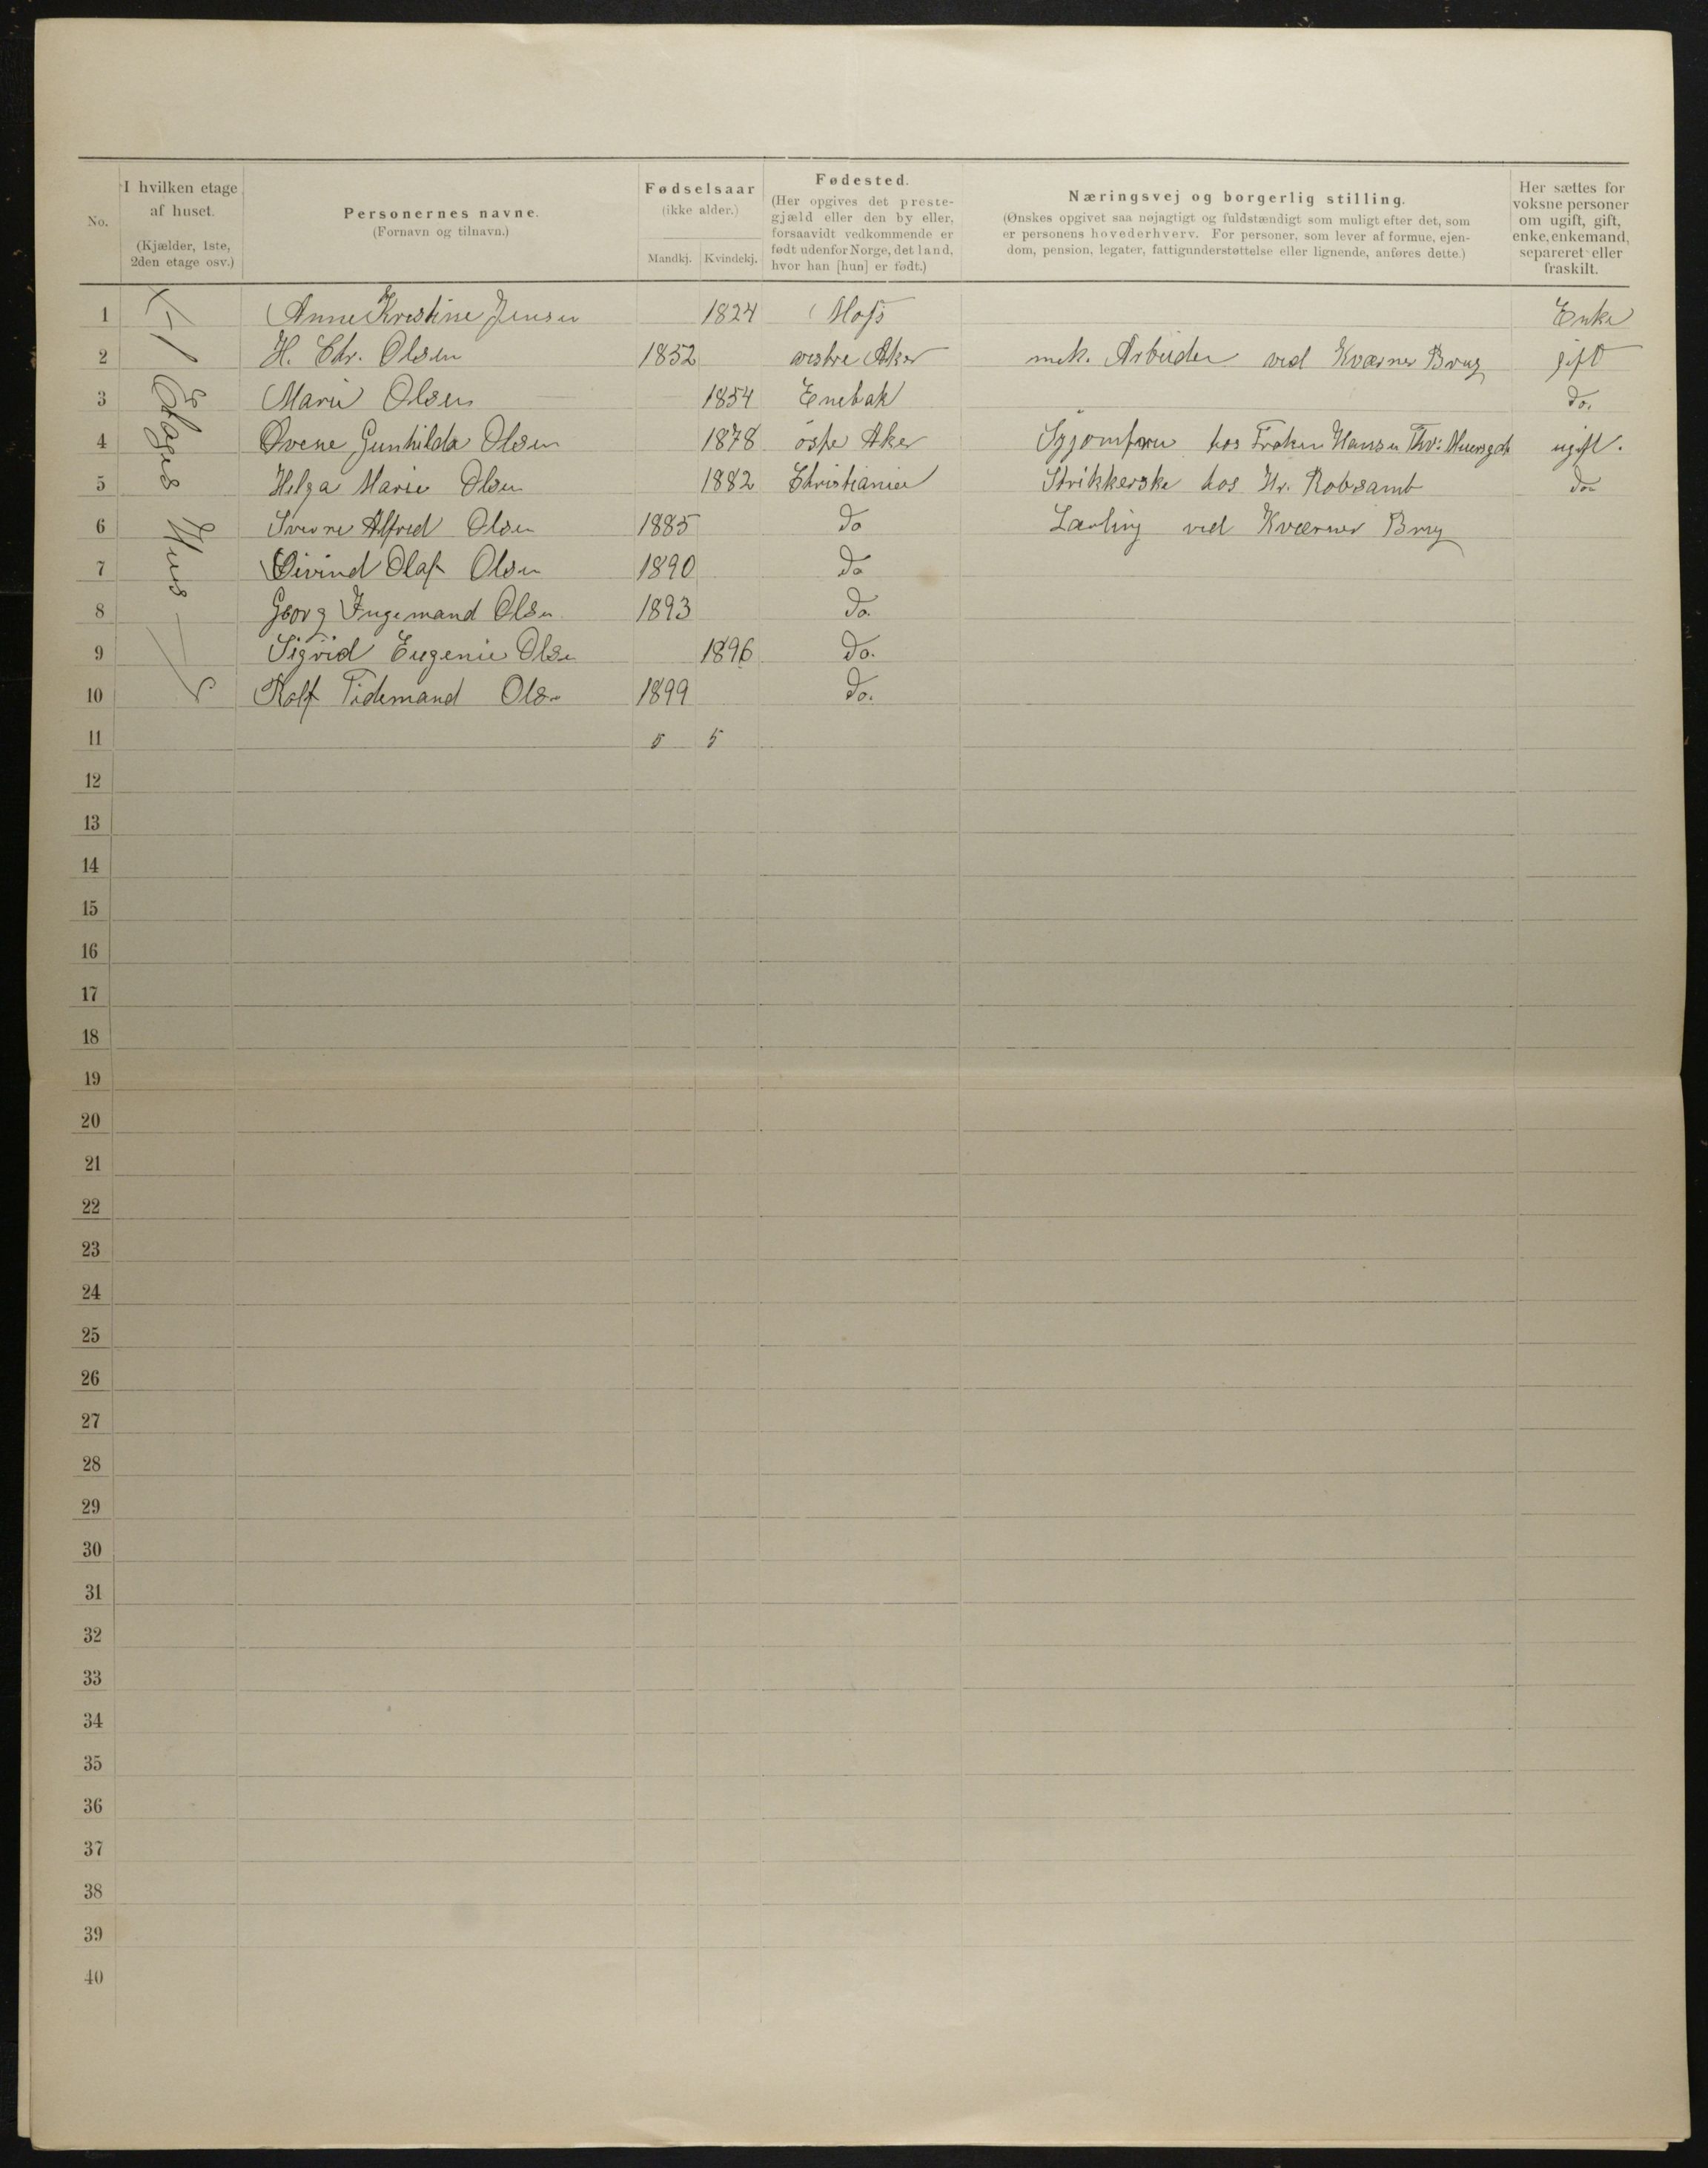 No. I hvilken etage af huset. (Kjælder, 1ste, 2den etage osv.) Personernes navne. (Fornavn og tilnavn.) Fødselsaar (ikke alder.) Mandkj. Kvindekj. Fødested. (Her opgives det prestegjæld eller den by eller, forsaavidt vedkommende er født udenfor Norge, det land, hvor han [hun] er født.) Næringsvej og borgerlig stilling. (Ønskes opgivet saa nøjagtigt og fuldstændigt som muligt efter det, som er personens hovederhverv. For personer, som lever af formue, ejendom, pension, legater, fattigunderstøttelse eller lignende, anføres dette.) Her sættes for voksne personer om ugift, gift, enke, enkemand, separeret eller fraskilt.
1 Etages Hus
1 Anne Kristine Jensen 1824 Moss Enke
2 H. Chr. Olsen 1852 vestre Aker mek. Arbeider ved Kværner Brug gift
3 Marie Olsen 1854 Enebak do.
4 Gunhilda Olsen 1878 østre Aker Syjomfru hos Frøken Hansen ugift.
5 Helga Marie Olsen 1882 Christiania Strikkerske hos Hr. Robsamt do
6 Sverre Alfred Olsen 1885 do Lærling ved Kværner Brug
7 Øivind Olaf Olsen 1890 do
8 Georg Ingemand Olsen 1893 do.
9 Sigrid Eugenie Olsen 1896 do.
10 Rolf Tidemand Olsen 1899 do.
11 5 5
12
13
14
15
16
17
18
19
20
21
22
23
24
25
26
27
28
29
30
31
32
33
34
35
36
37
38
39
40